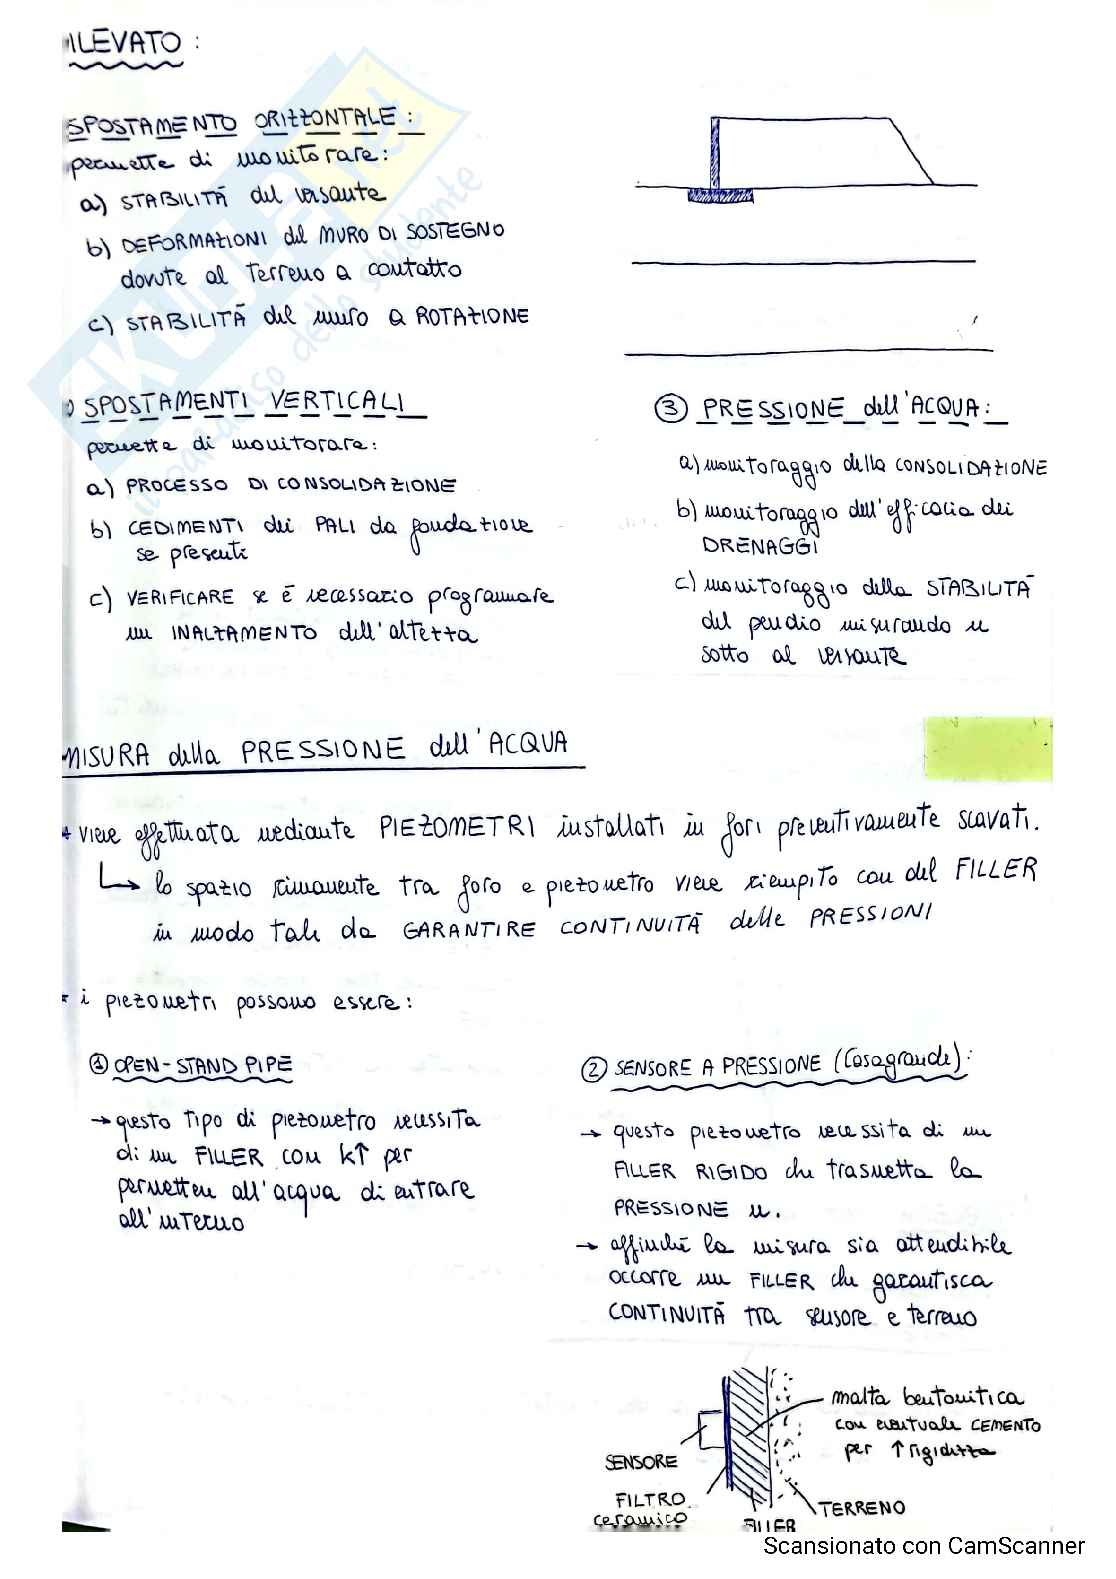 ILEVATO :
SPOSTAMENTO ORIZZONTALE :
permette di monitorare :
a) STABILITÀ del versante
b) DEFORMAZIONI del MURO DI SOSTEGNO
dovute al terreno a contatto
c) STABILITÀ del muro a ROTAZIONE
) SPOSTAMENTI VERTICALI
permette di monitorare :
a) PROCESSO DI CONSOLIDAZIONE
b) CEDIMENTI dei PALI da fondazione
se presenti
c) VERIFICARE se è necessario programmare
un INALZAMENTO dell'altezza
③ PRESSIONE dell'ACQUA :
a) monitoraggio della CONSOLIDAZIONE
b) monitoraggio dell'efficacia dei
DRENAGGI
c) monitoraggio della STABILITÀ
del pendio misurando u
sotto al versante
MISURA della PRESSIONE dell'ACQUA
* viene effettuata mediante PIEZOMETRI installati in fori preventivamente scavati.
↳ lo spazio rimanente tra foro e piezometro viene riempito con del FILLER
in modo tale da GARANTIRE CONTINUITÀ delle PRESSIONI
* i piezometri possono essere :
① OPEN-STAND PIPE
→ questo tipo di piezometro necessita
di un FILLER con k↑ per
permettere all'acqua di entrare
all'interno
② SENSORE A PRESSIONE (Casagrande) :
→ questo piezometro necessita di un
FILLER RIGIDO che trasmetta la
PRESSIONE u.
→ affinché la misura sia attendibile
occorre un FILLER che garantisca
CONTINUITÀ tra sensore e terreno
malta bentonitica
con eventuale CEMENTO
per ↑ rigidezza
SENSORE
FILTRO
ceramico
FILLER
TERRENO
SKUOLA.net
il paradiso dello studente
Scansionato con CamScanner